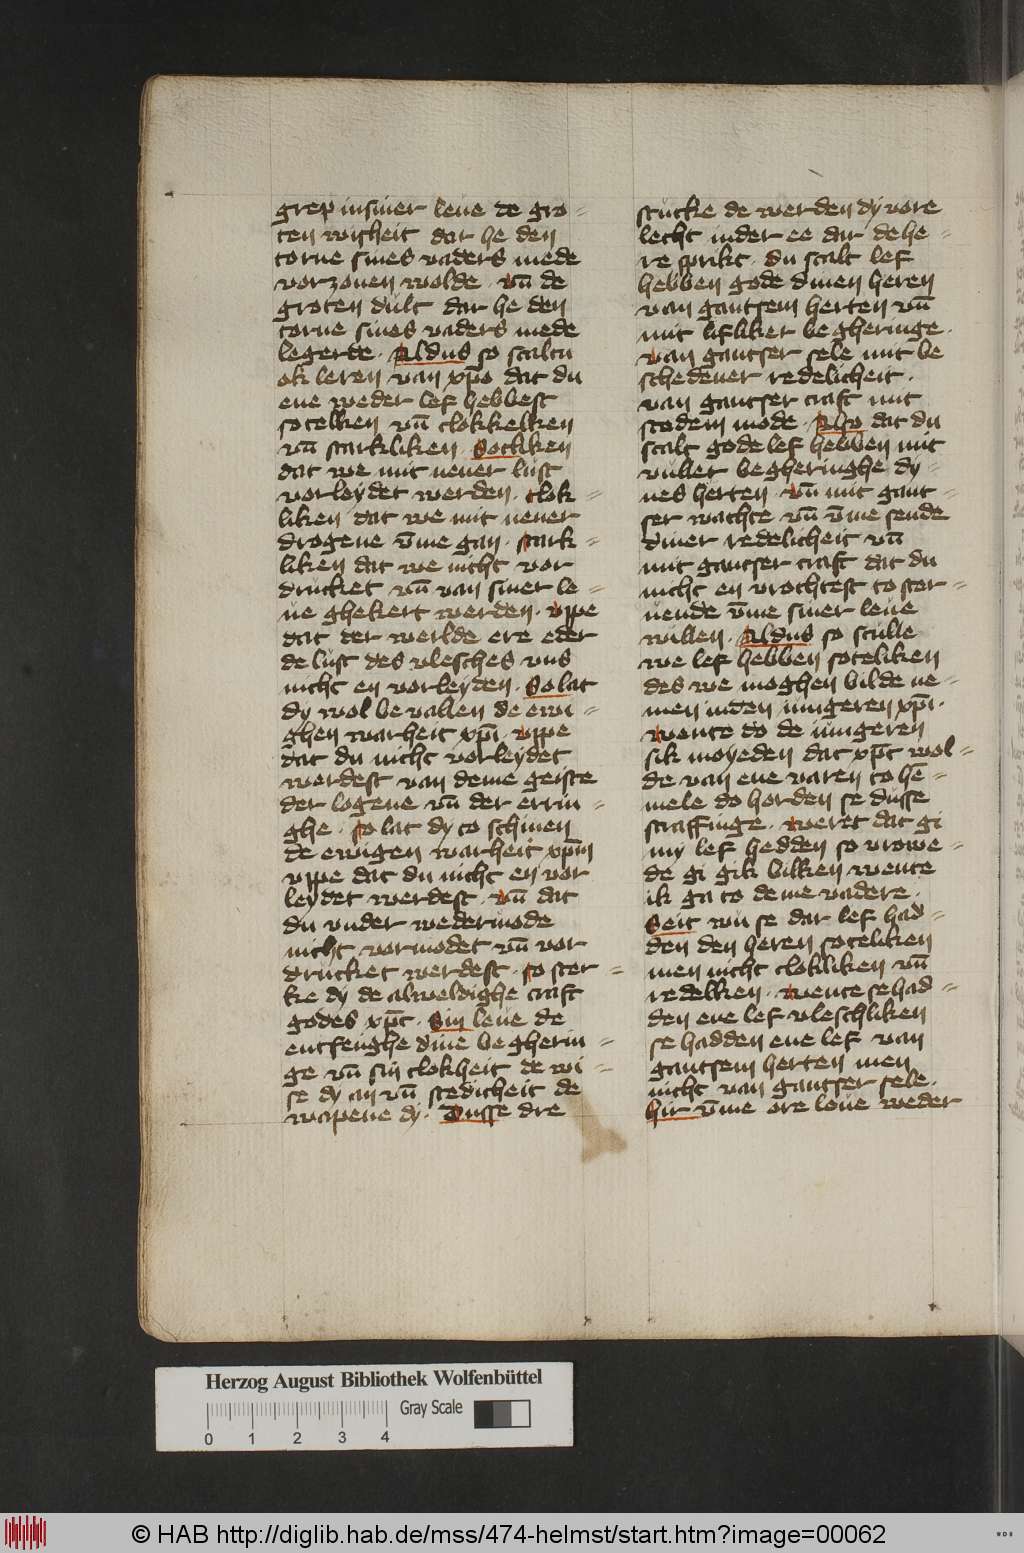 grep in siner leue de gro=
ten wisheit dar he den
torne sines vaders mede
vorzonen wolde · vn̄ de
groten dult dar he den
torne sines vaders mede
legerde · Aldus so scaltu
ok leren van xp̄o dat du
ene weder lef hebbest
sotelken vn̄ clokkelken
vn̄ starkliken · Sotliken
dat we mit nener lust
vorleydet werden · clok=
liken dat we mit nener
drogene v̄me gan · stark=
liken dat we nicht vor
drucket vn̄ van siner le=
ue ghekert werden · vppe
dat der werlde ere eder
de lust des vlesches vns
nicht en vorleyden · So lat
dy wol bevallen de ewi=
ghen warheit xp̄i · vppe
dat du nicht vorleydet
werdest van deme geiste
der logene vn̄ der errin=
ghe · so lat dy to schinen
de ewigen warheit xp̄m
vppe dat du nicht en vor
leydet werdest · vn̄ dat
du vnder wedermode
nicht vormodet vn̄ vor
drucket werdest · so ster=
ke dy de alweldighe craft
godes xp̄c · Sin leue de
entfenghe dine begherin=
ge vn̄ sin clokheit de wi=
se dy an vn̄ stedicheit de
wapene dy · Dusse dre
stucke de werden dy vore
lecht in der ee dar de he=
re sprikt · du scalt lef
hebben gode dinen heren
van gantsem herten vn̄
mit lifliker begheringe ·
van gantser sele mit be
schedener redelicheit ·
van gantser craft mit
stodem mode · Also dat du
scalt gode lef hebben mit
vuller begheringhe dy=
nes herten · vn̄ mit gant=
ser wachte vn̄ v̄me sende
diner redelicheit vn̄
mit gantser craft dat du
nicht en vrochtest to ster=
uende v̄me siner leue
willen · Aldus so sculle
we lef hebben soteliken
des we moghen bilde ne=
men in den iungeren xp̄i ·
wente do de iungeren
sik moyeden dat xp̄c wol=
de van ene varen to he=
mele do horden se dusse
straffinge · weret dat gi
my lef hedden so vrowe=
de gi gik bilken wente
ik ga to deme vadere ·
Seit wu se dar lef had=
den den heren soteliken
men nicht clokliken vn̄
redelken · wente se had=
den ene lef vleschliken
se hadden ene lef van
gantsem herten men
nicht van gantser sele ·
hir v̄me ore loue weder
Herzog August Bibliothek Wolfenbüttel
Gray Scale
0 1 2 3 4
© HAB http://diglib.hab.de/mss/474-helmst/start.htm?image=00062